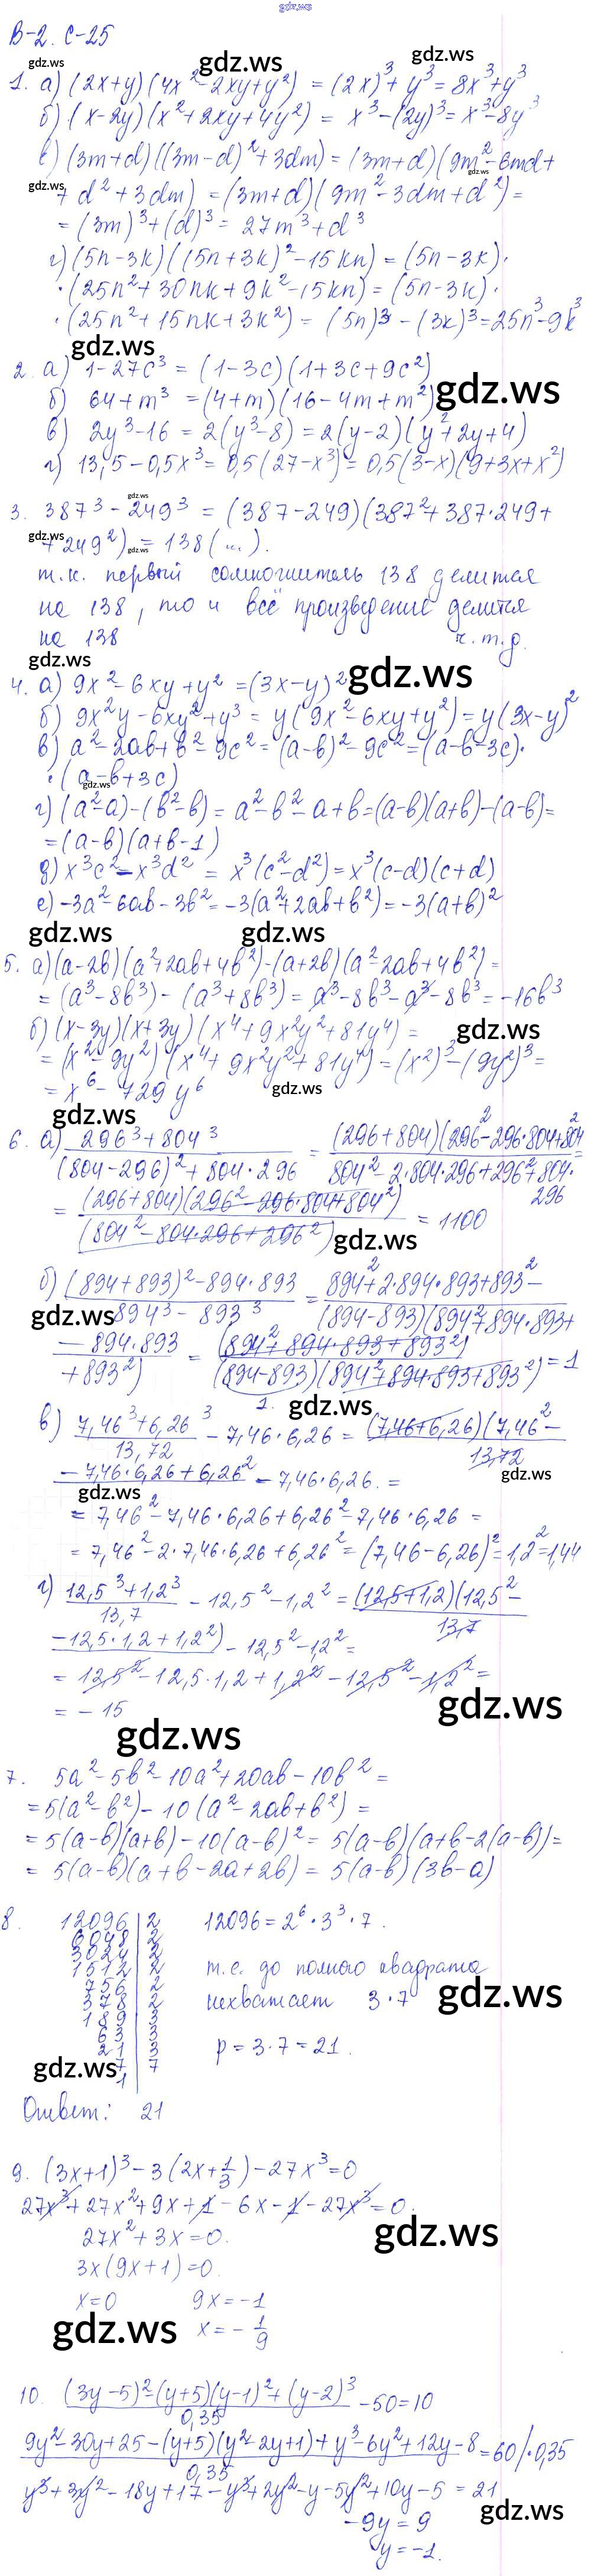 gdz.ws
В-2. С-25
gdz.ws gdz.ws gdz.ws
1. а) (2x+y)(4x²-2xy+y²) = (2x)³+y³ = 8x³+y³
б) (x-2y)(x²+2xy+4y²) = x³-(2y)³ = x³-8y³
в) (3m+d)((3m-d)²+3dm) = (3m+d)(9m²-6md+
gdz.ws
gdz.ws
+d²+3dm) = (3m+d)(9m²-3dm+d²) =
= (3m)³+(d)³ = 27m³+d³
г) (5n-3k)((5n+3k)²-15kn) = (5n-3k)·
·(25n²+30nk+9k²-15kn) = (5n-3k)·
·(25n²+15nk+3k²) = (5n)³-(3k)³=25n³-9k³
gdz.ws
2. а) 1-27c³ = (1-3c)(1+3c+9c²)
б) 64+m³ = (4+m)(16-4m+m²)
gdz.ws
в) 2y³-16 = 2(y³-8) = 2(y-2)(y²+2y+4)
г) 13,5-0,5x³ = 0,5(27-x³) = 0,5(3-x)(9+3x+x²)
gdz.ws
3. 387³-249³ = (387-249)(387²+387·249+
gdz.ws
+249²) = 138(...).
gdz.ws
т.к. первый сомножитель 138 делится
на 138, то и всё произведение делится
на 138 ч.т.д.
gdz.ws gdz.ws
4. а) 9x²-6xy+y² = (3x-y)²
б) 9x²y-6xy²+y³ = y(9x²-6xy+y²) = y(3x-y)²
в) a²-2ab+b²-9c² = (a-b)²-9c² = (a-b-3c)·
·(a-b+3c)
gdz.ws
г) (a²-a)-(b²-b) = a²-b²-a+b = (a-b)(a+b)-(a-b) =
= (a-b)(a+b-1)
д) x³c²-x³d² = x³(c²-d²) = x³(c-d)(c+d)
е) -3a²-6ab-3b² = -3(a²+2ab+b²) = -3(a+b)²
gdz.ws gdz.ws
5. а) (a-2b)(a²+2ab+4b²)-(a+2b)(a²-2ab+4b²) =
= (a³-8b³)-(a³+8b³) = a³-8b³-a³-8b³ = -16b³
б) (x-3y)(x+3y)(x⁴+9x²y²+81y⁴) =
gdz.ws
= (x²-9y²)(x⁴+9x²y²+81y⁴) = (x²)³-(9y²)³ =
= x⁶-729y⁶
gdz.ws
gdz.ws
6. а) 296³+804³ / (804-296)²+804·296 = (296+804)(296²-296·804+804² / 804²-2·804·296+296²+804·296 =
= (296+804)(296²-296·804+804²) / (804²-804·296+296²) = 1100
gdz.ws
б) (894+893)²-894·893 / 894³-893³ = 894²+2·894·893+893²- / (894-893)(894²+894·893+
gdz.ws
-894·893 / +893²) = (894²+894·893+893²) / (894-893)(894²+894·893+893²) = 1
1.
gdz.ws
в) 7,46³+6,26³ / 13,72 - 7,46·6,26 = (7,46+6,26)(7,46²- / 13,72
gdz.ws
-7,46·6,26+6,26² - 7,46·6,26. =
gdz.ws
= 7,46²-7,46·6,26+6,26²-7,46·6,26 =
= 7,46²-2·7,46·6,26+6,26² = (7,46-6,26)² = 1,2² = 1,44
г) 12,5³+1,2³ / 13,7 - 12,5²-1,2² = (12,5+1,2)(12,5²- / 13,7
-12,5·1,2+1,2²) - 12,5²-1,2² =
= 12,5²-12,5·1,2+1,2²-12,5²-1,2² =
= -15
gdz.ws
gdz.ws
7. 5a²-5b²-10a²+20ab-10b² =
= 5(a²-b²)-10(a²-2ab+b²) =
= 5(a-b)(a+b)-10(a-b)² = 5(a-b)(a+b-2(a-b)) =
= 5(a-b)(a+b-2a+2b) = 5(a-b)(3b-a)
8. 12096 | 2 12096 = 2⁶·3³·7.
6048 | 2
3024 | 2
1512 | 2 т.е. до полного квадрата
756 | 2
378 | 2 нехватает 3·7
gdz.ws
189 | 3
63 | 3
21 | 3 p = 3·7 = 21.
7 | 7
1
gdz.ws
Ответ: 21
9. (3x+1)³-3(2x+1/3)-27x³=0
27x³+27x²+9x+1-6x-1-27x³=0.
27x²+3x=0.
gdz.ws
3x(9x+1)=0
x=0 9x=-1
gdz.ws
x=-1/9
10. (3y-5)²-(y+5)(y-1)²+(y-2)³ / 0,35 - 50 = 10
9y²-30y+25-(y+5)(y²-2y+1)+y³-6y²+12y-8 / 0,35 = 60 /·0,35
y³+3y²-18y+17-y³+2y²-y-5y²+10y-5 = 21
gdz.ws
-9y = 9
y = -1.